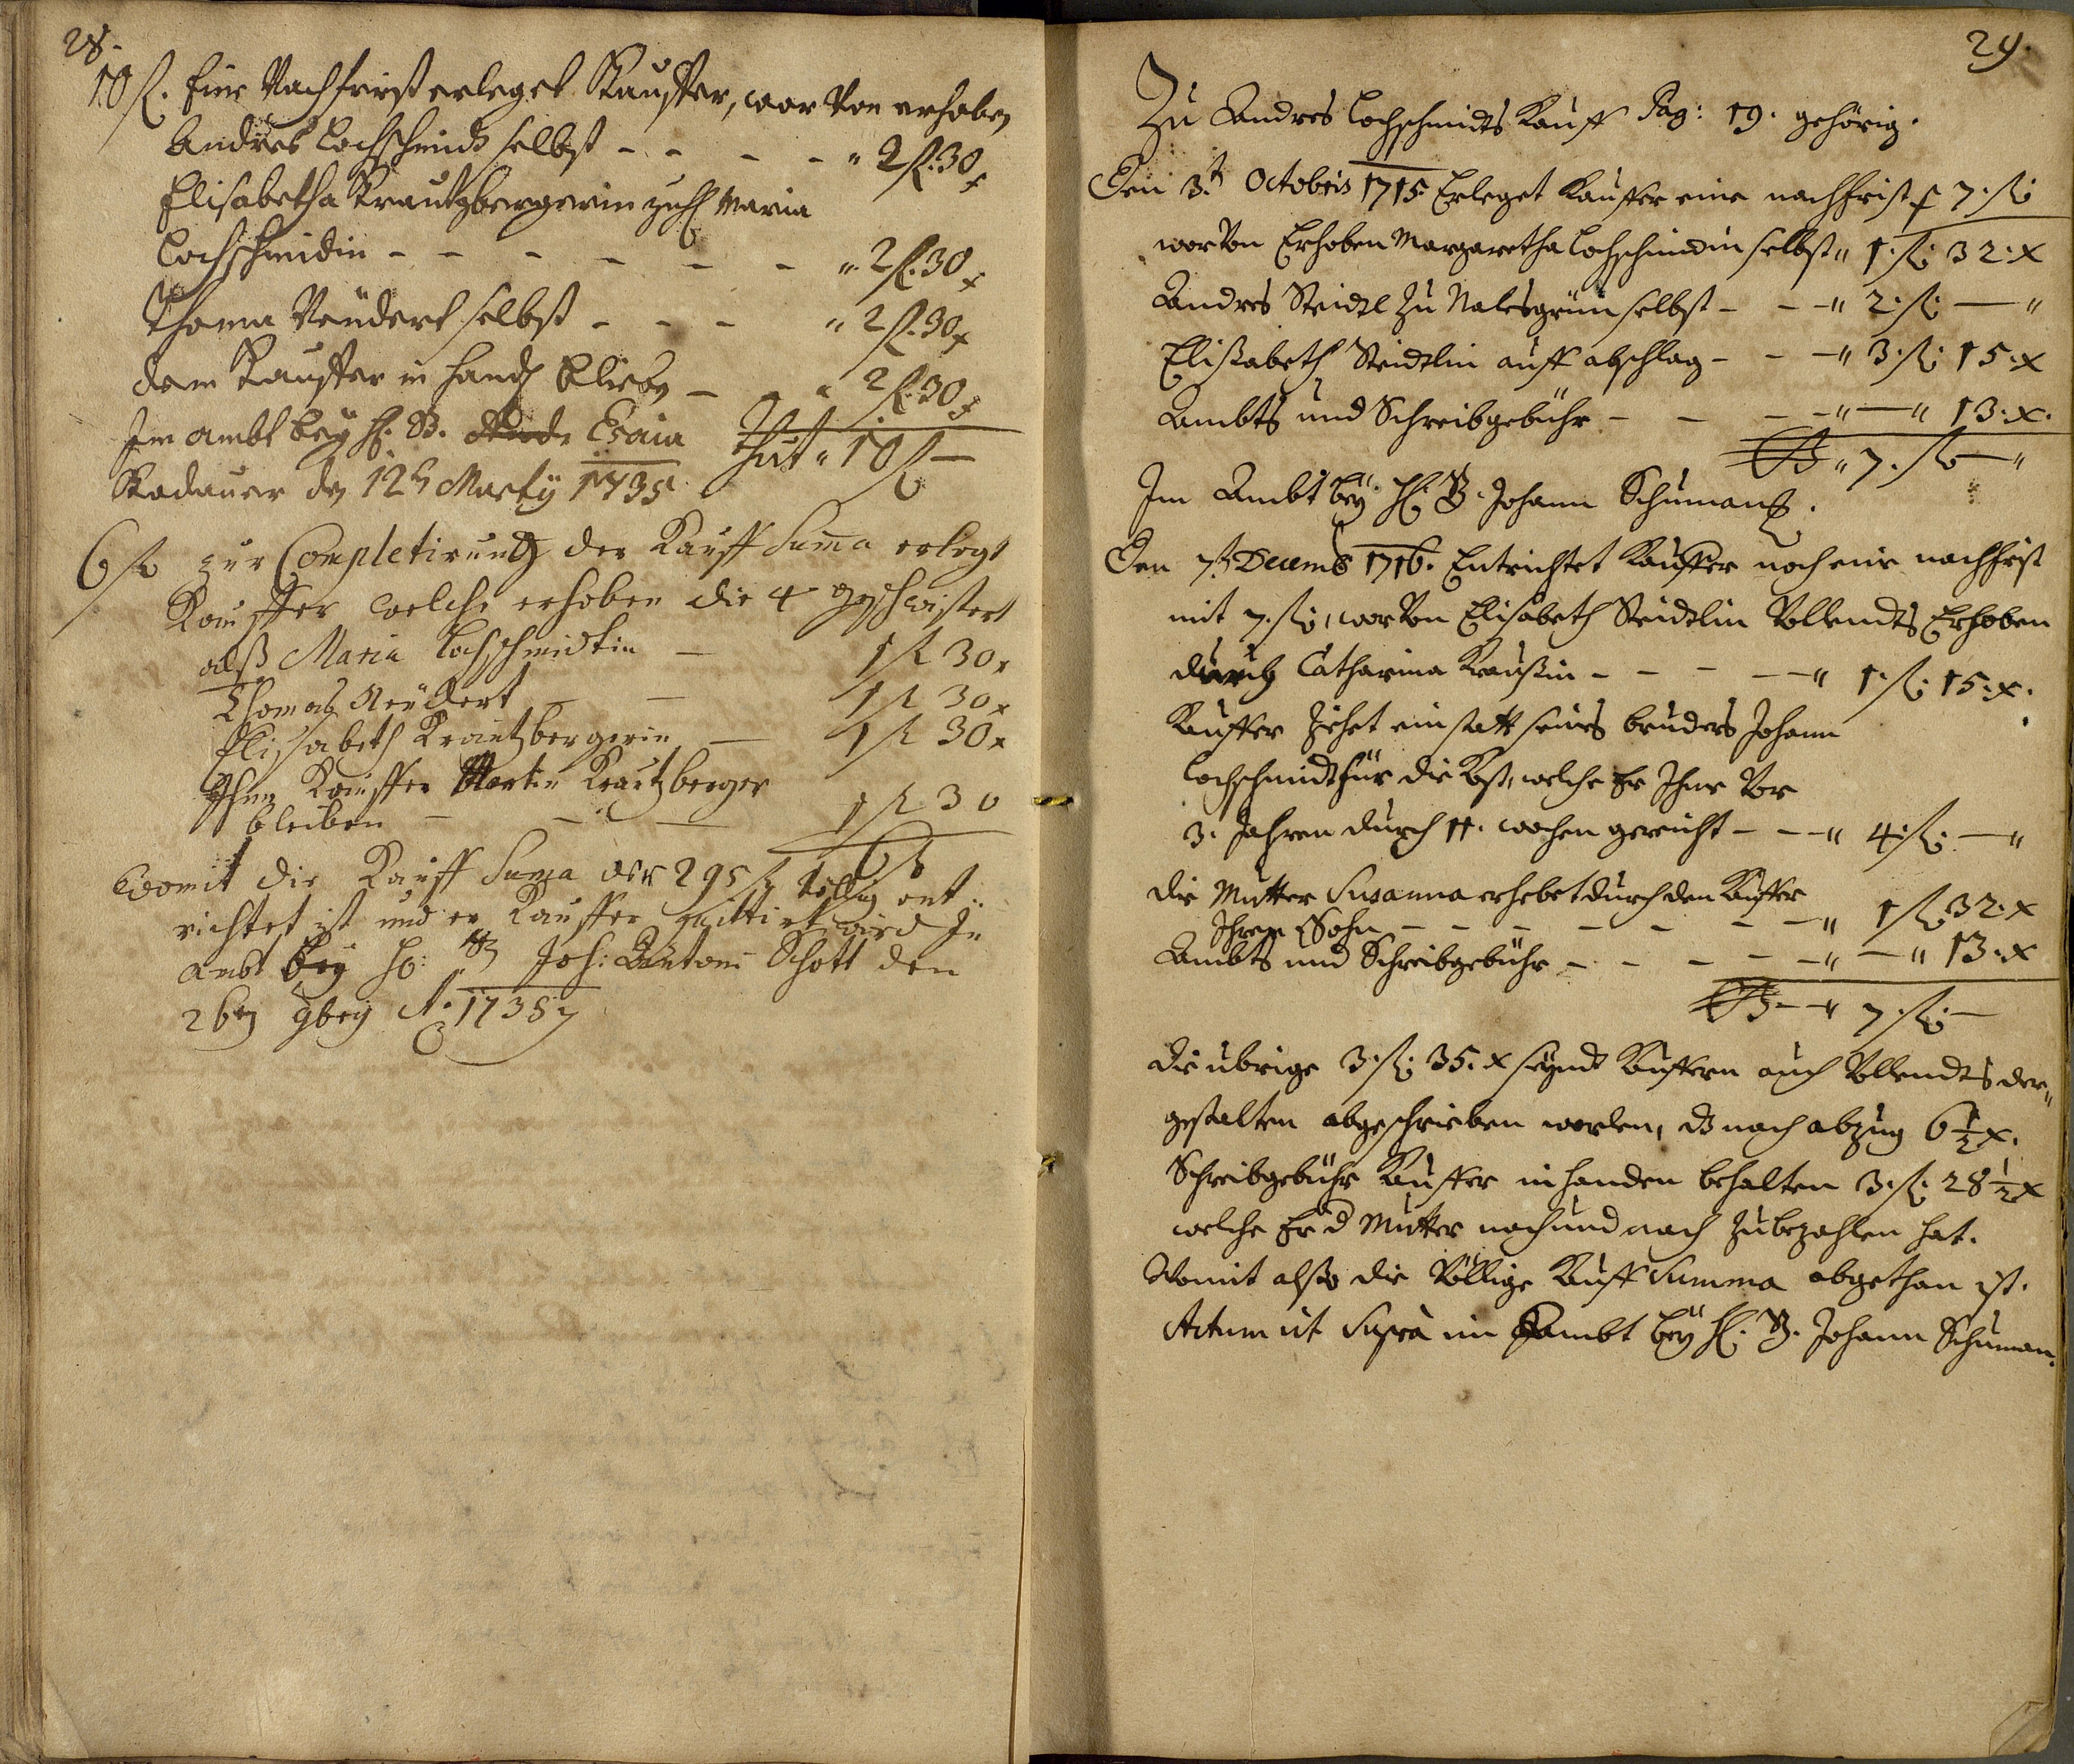 28.
10 fl. Eine Nachfrist erleget Kauffer, wor Von erhoben
Andres Lochschmidt selbst - - - - " 2 fl. 30 x
Elisabetha Krautzbergerin Maria
Lochschmidin - - - - - - " 2 fl. 30 x
Thoma Neudert selbst - - - " 2 fl. 30 x
dem Kauffer in hand blieben - " 2 fl. 30 x
thut " 10 fl —
Im ambt bey H. B. Esaia
Stadauer den 12t Marty 1735
6 fl zur Completirung der Kauff Suma erlegt
Kauffer welche erhoben die 4 geschwistert
alß Maria Lochschmidtin — 1 fl 30 x
Thomas Neudert — 1 fl 30 x
Elisabeth Krautzbergerin — 1 fl 30 x
Ihme Kauffer Martin Krautzberger
bleiben — — — 1 fl 30
6 fl
Womit die Kauff Suma der 295 fl völlig ent-
richtet ist und er Kauffer quittirt wird In
ambt bey H: Joh: Antoni Schott den
26ten 9bris A. 1738
29.
Zu Andres Lochschmidts Kauff Pag: 19. gehörig.
Den 3.t Octobris 1715 Erleget Kauffer eine nachfrist p 7. fl.
worVon Erhoben Margaretha Lochschmidin selbst " 1. fl. 32. x
Andres Steidl zu Nalesgrün selbst - - — " 2. fl. — "
Elisabeth Steidtlin auff abschlag - - — " 3. fl. 15. x
Ambts und Schreibgebühr - - - — " — " 13. x.
" 7. fl. — "
Im Ambt bey H. B. Johann Schumann.
Den 7.t Decemb 1716. Entrichtet Kauffer noch eine nachfrist
mit 7. fl., worVon Elisabeth Steidtlin Vollendts Erhoben
durch Catharina Kraußin - - - - — " 1. fl. 15. x.
Kauffer ziehet ein statt seines bruders Johann
Lochschmidt für die Kost, welche Er Ihme Vor
3. Jahren durch 11. wochen gereicht - - — " 4. fl. — "
die Mutter Susanna erhebet durch den Kauffer
Ihren Sohn - - - - - - — " 1 fl. 32. x
Ambts und Schreibgebühr - - - - - — " — " 13. x
— " 7. fl. —
die übrige 3. fl. 35. x seynd Kauffern auch Vollendts der-
gestalten abgeschrieben worden, dz nach abzug 6 1/2 x.
Schreibgebühr Kauffer in handen behalten 3. fl. 28 1/2 x
welche Er d Mutter nach und nach zubezahlen hat.
Womit also die Völlige Kauff Summa abgethan ist.
Actum ut Supra im Ambt bey H. B. Johann Schuman.